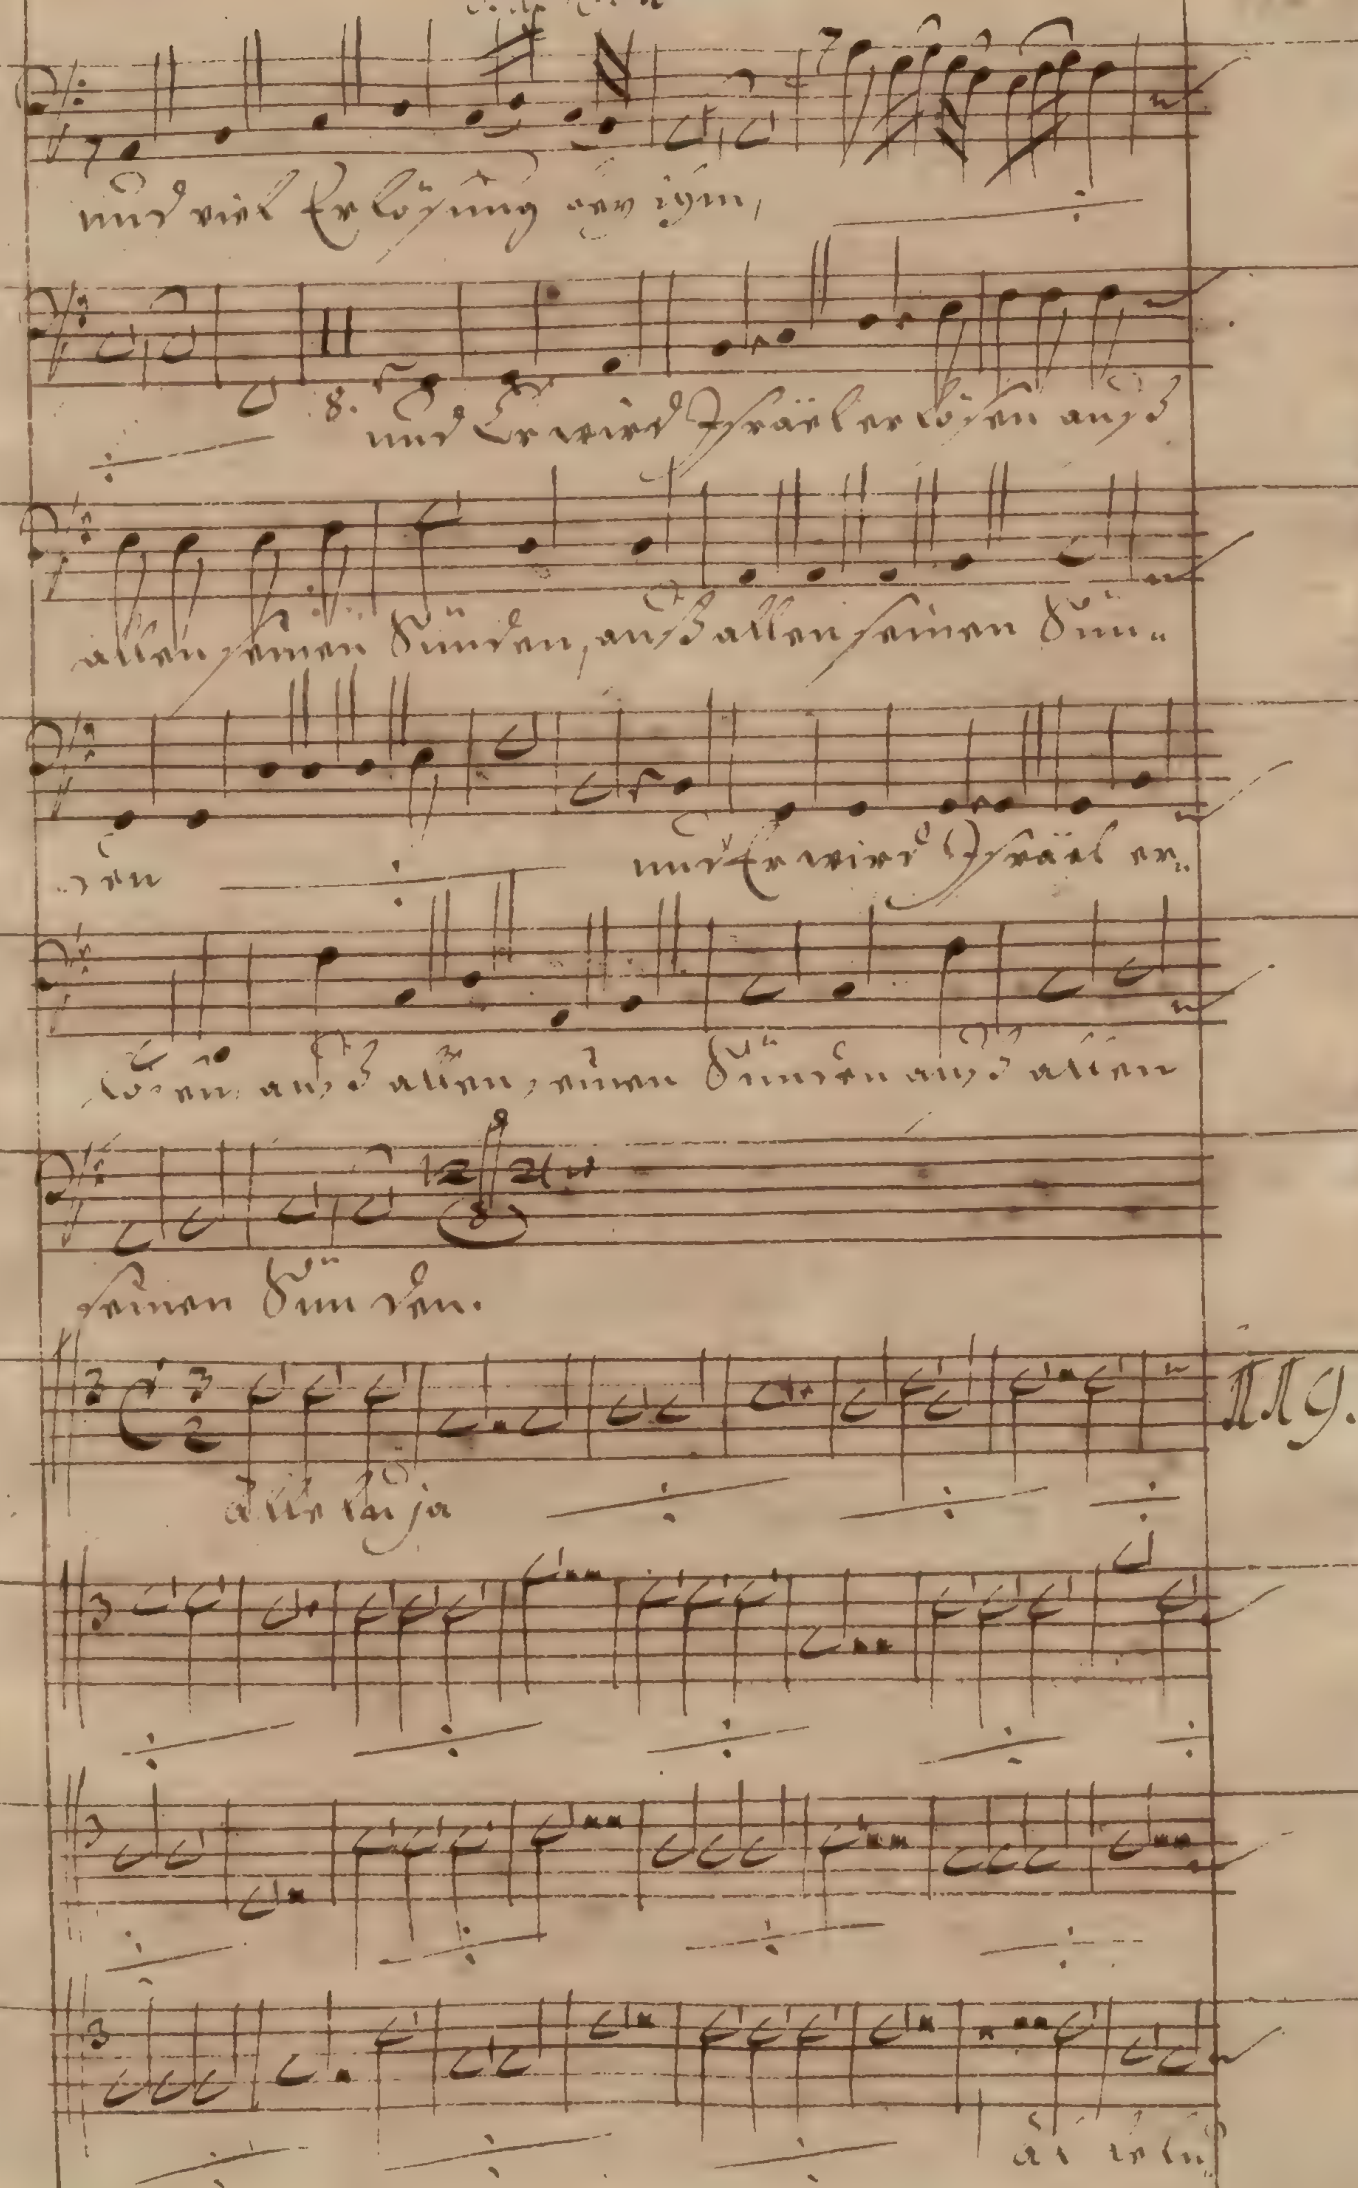 und viel Erlösung bey ihm,
8.
und Er wird Israël erlösen auß
allen seinen Sünden, auß allen seinen Sün-
den und Er wird Israël er-
lösen auß allen seinen Sünden auß allen
seinen Sünden.
3 2
119.
alleluja
3
3
3
allelu